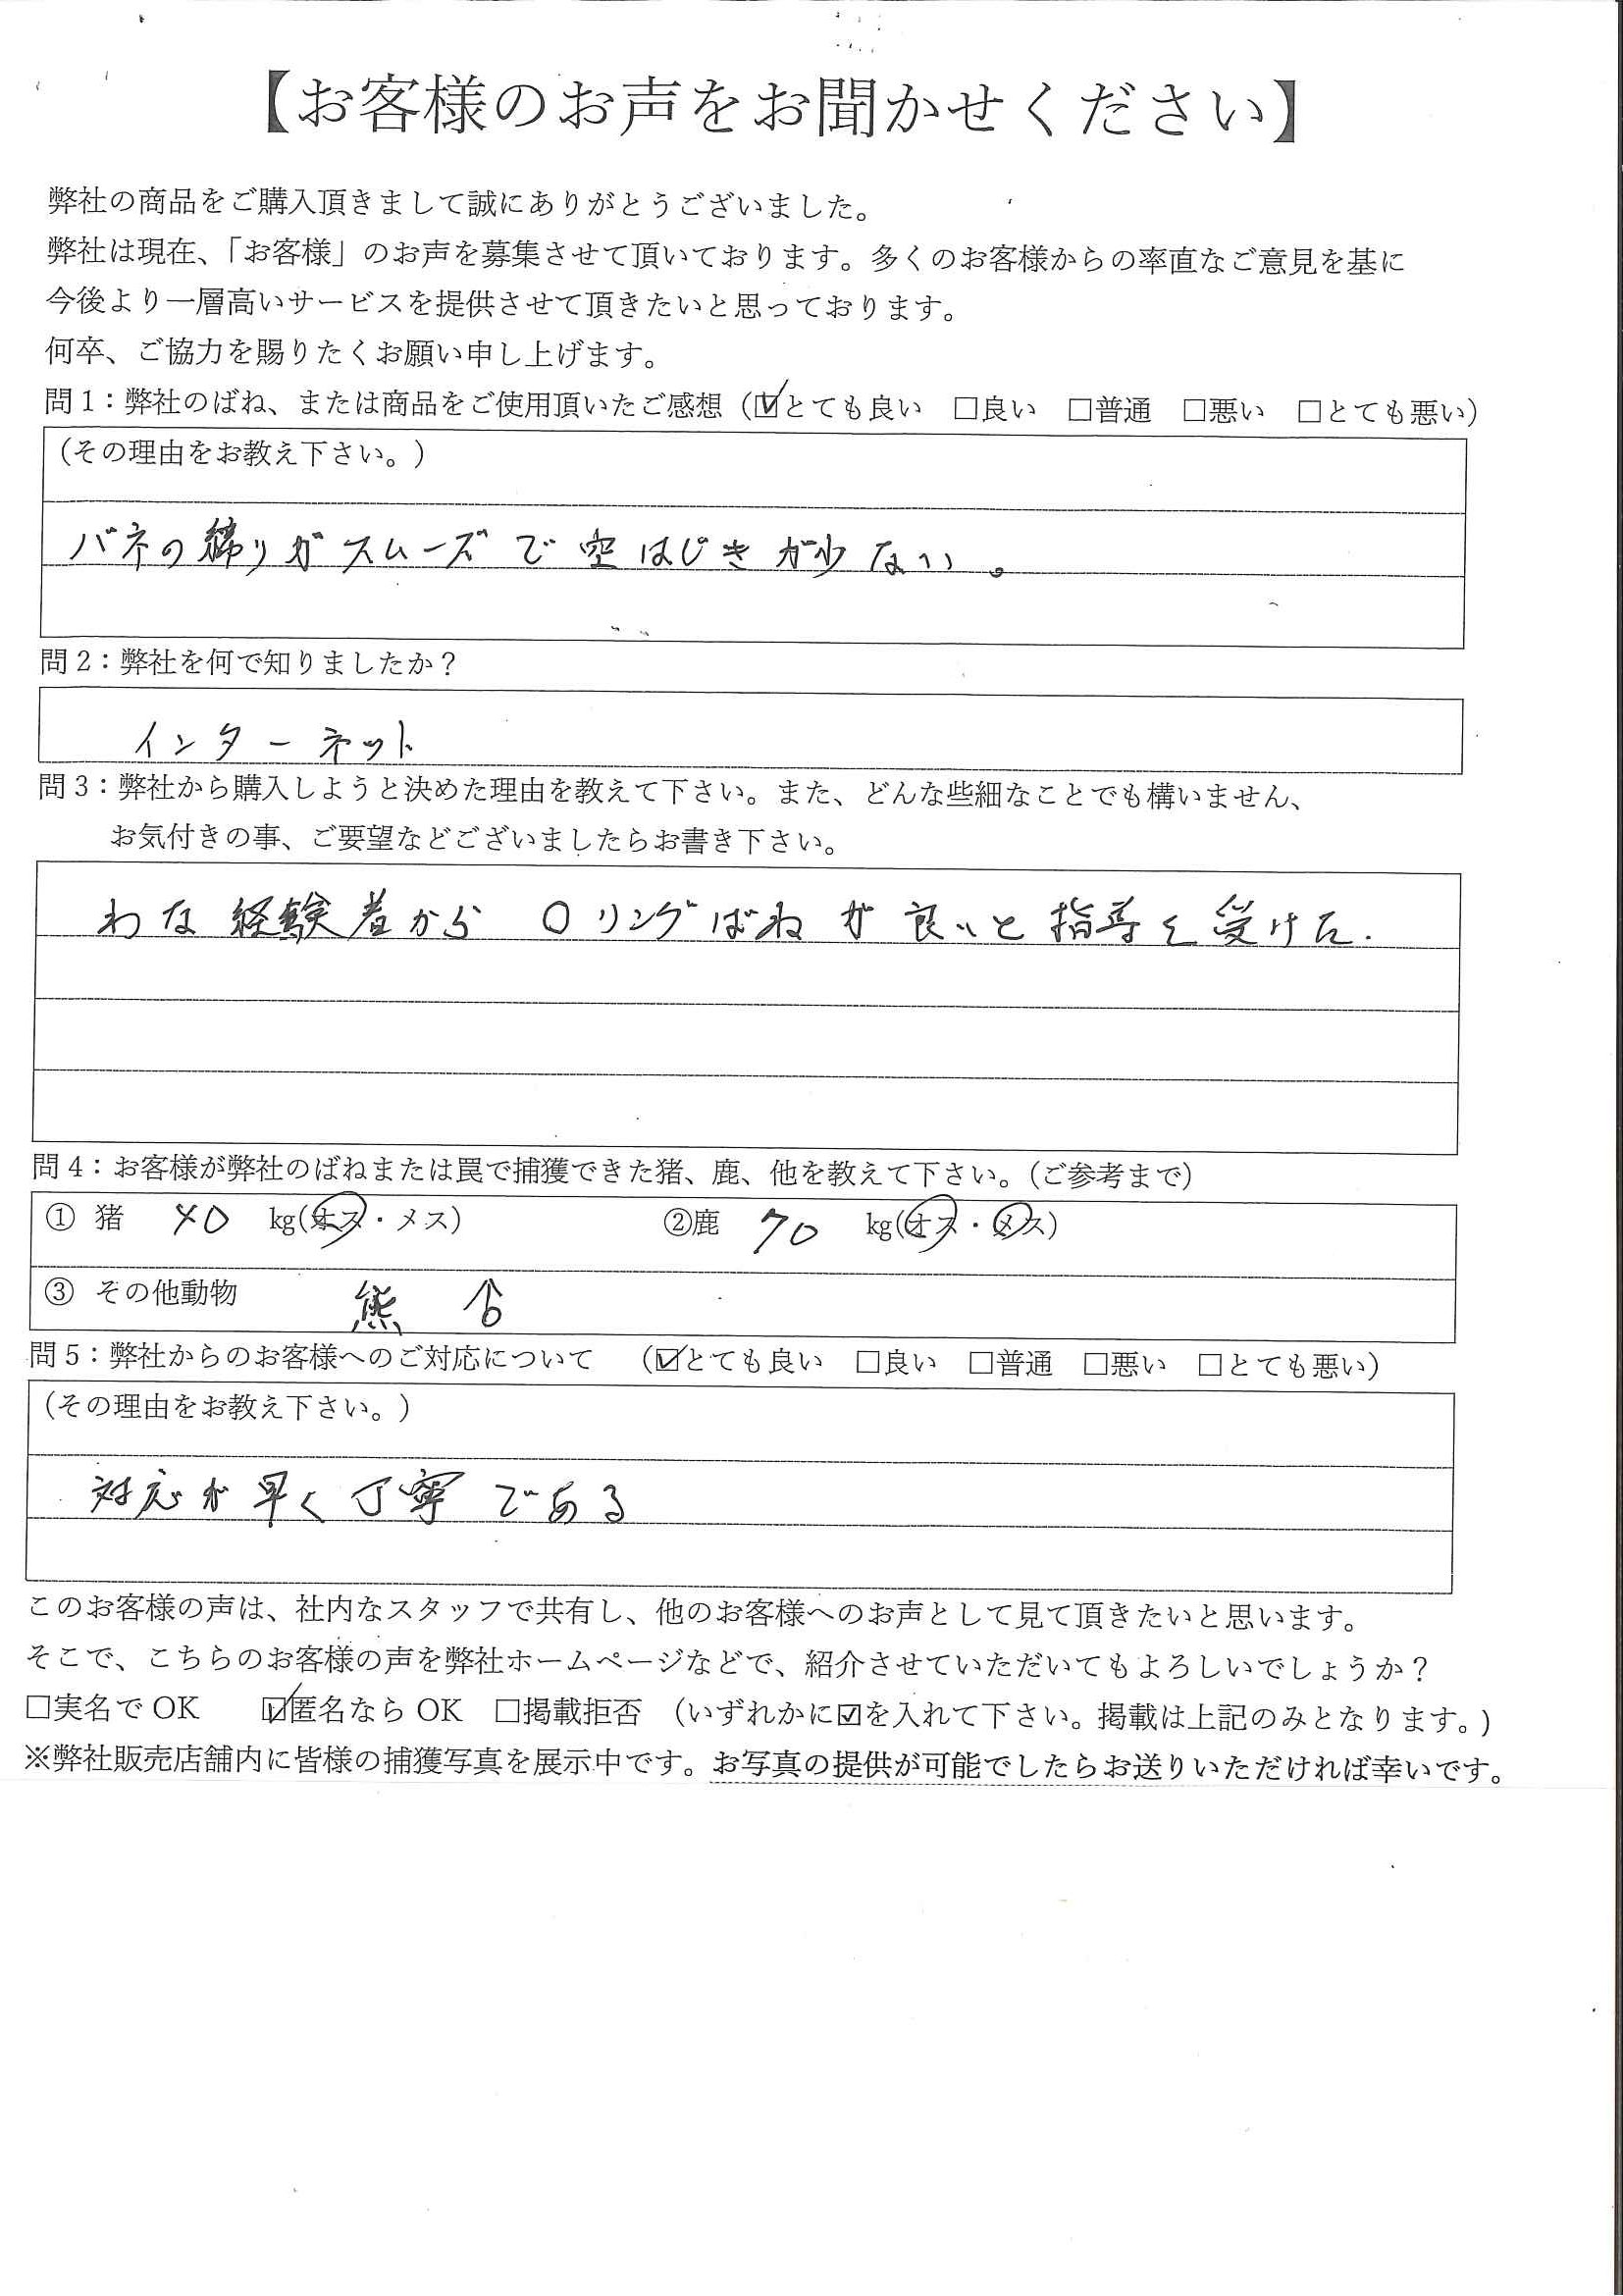 【お客様のお声をお聞かせください】
弊社の商品をご購入頂きまして誠にありがとうございました。
弊社は現在、「お客様」のお声を募集させて頂いております。多くのお客様からの率直なご意見を基に
今後より一層高いサービスを提供させて頂きたいと思っております。
何卒、ご協力を賜りたくお願い申し上げます。
問1：弊社のばね、または商品をご使用頂いたご感想（☑とても良い　□良い　□普通　□悪い　□とても悪い）
（その理由をお教え下さい。）
バネの締りがスムーズで空はじきが少ない。
問2：弊社を何で知りましたか？
インターネット
問3：弊社から購入しようと決めた理由を教えて下さい。また、どんな些細なことでも構いません、
お気付きの事、ご要望などございましたらお書き下さい。
わな経験者から Oリングばねが良いと指導を受けた.
問4：お客様が弊社のばねまたは罠で捕獲できた猪、鹿、他を教えて下さい。（ご参考まで）
① 猪　40　kg(オス・メス)　②鹿　70　kg(オス・メス)
③ その他動物　熊 ♂
問5：弊社からのお客様へのご対応について　（☑とても良い　□良い　□普通　□悪い　□とても悪い）
（その理由をお教え下さい。）
対応が早く丁寧である
このお客様の声は、社内なスタッフで共有し、他のお客様へのお声として見て頂きたいと思います。
そこで、こちらのお客様の声を弊社ホームページなどで、紹介させていただいてもよろしいでしょうか？
□実名で OK　☑匿名なら OK　□掲載拒否　（いずれかに☑を入れて下さい。掲載は上記のみとなります。）
※弊社販売店舗内に皆様の捕獲写真を展示中です。お写真の提供が可能でしたらお送りいただければ幸いです。